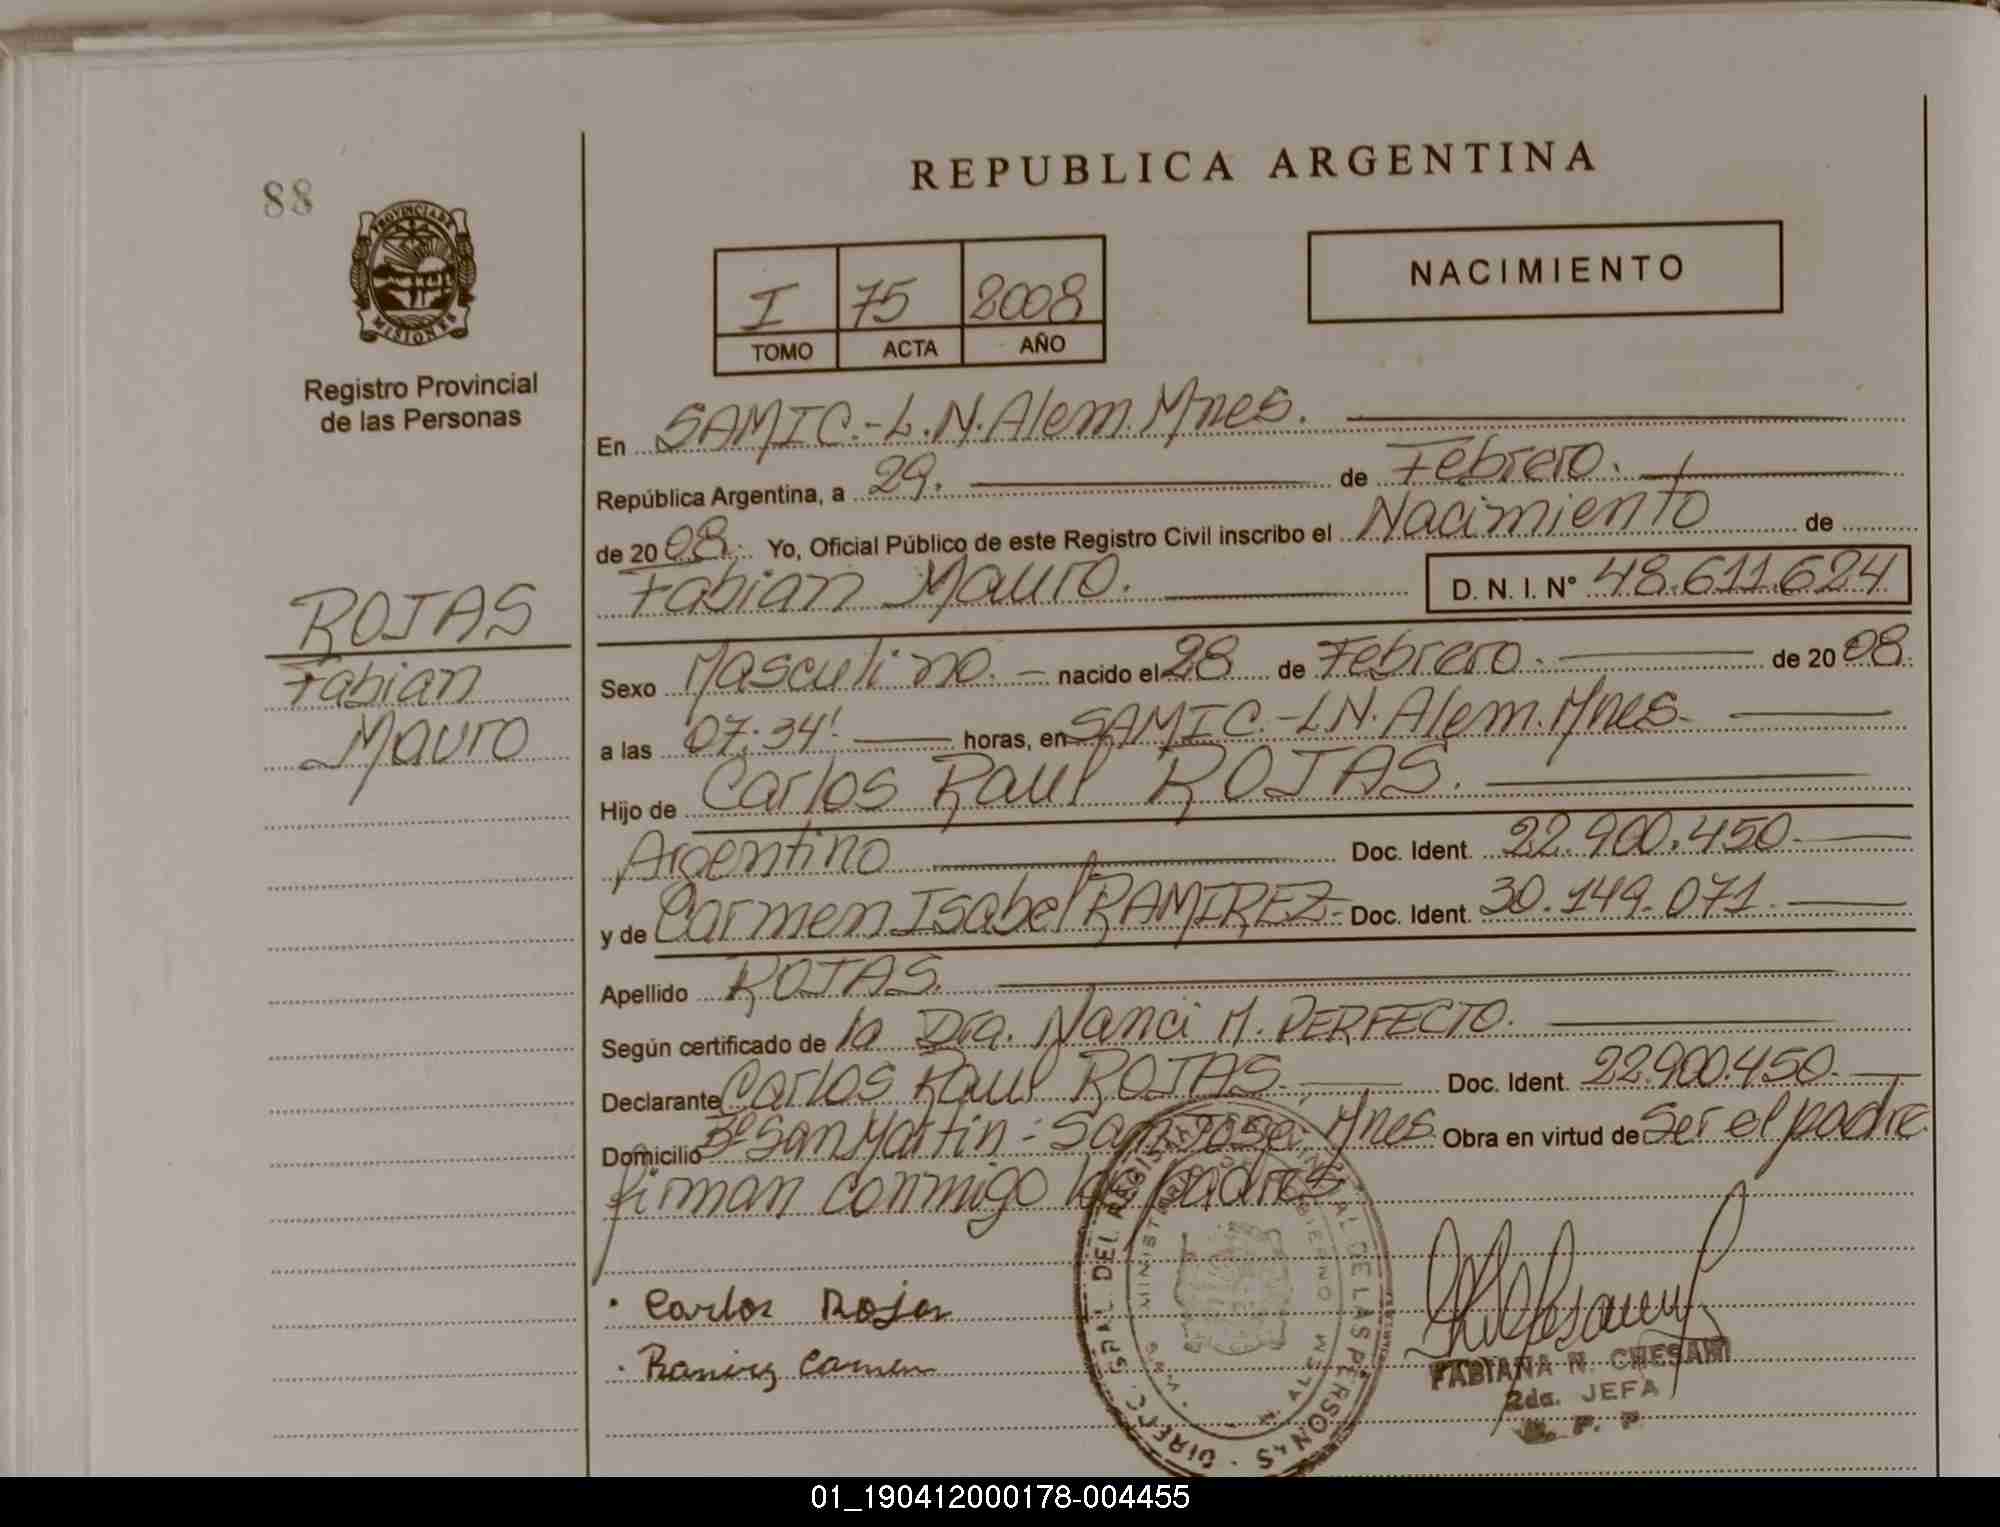 88
REPUBLICA ARGENTINA
PROVINCIA DE
MISIONES
Registro Provincial
de las Personas
I 75 2008
TOMO ACTA AÑO
NACIMIENTO
En SAMIC.-L.N.Alem.Mnes.
República Argentina, a 29. de Febrero.
de 2008. Yo, Oficial Público de este Registro Civil inscribo el Nacimiento de
Fabian Mauro. D. N. I. N° 48.611.624
ROJAS
Fabian
Mauro
Sexo Masculino. nacido el 28 de Febrero. de 2008.
a las 07:34' horas, en SAMIC.-L.N.Alem.Mnes.
Hijo de Carlos Raul ROJAS.
Argentino Doc. Ident. 22.900.450.
y de Carmen Isabel RAMIREZ- Doc. Ident. 30.149.071.
Apellido ROJAS.
Según certificado de la Dra. Nanci M. PERFECTO.
Declarante Carlos Raul ROJAS. Doc. Ident. 22.900.450.
Domicilio Bº San Martin - San José, Mnes. Obra en virtud de Ser el padre.
firman conmigo los padres
Carlos Rojas
Ramirez Carmen
FABIANA N. CHESANI
2da. JEFA
R. P. P.
01_190412000178-004455